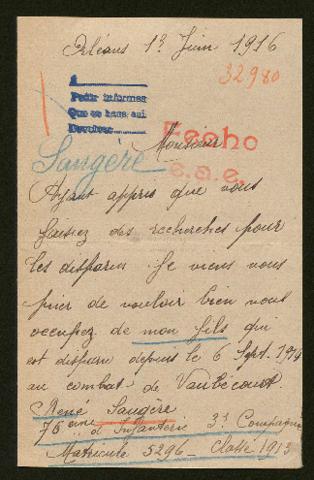 Orléans 1er Juin 1916
32980
A
Pedir informes
Que se haga asi
Devolver
Fecho
e.a.e.
Monsieur
Saugère
Ayant appris que vous
faisiez des recherches pour
les disparus Je viens vous
prier de vouloir bien vous
occupez de mon fils qui
est disparu depuis le 6 Sept. 1914
au combat de Vaubécourt.
René Saugère
76ème d'Infanterie 3e Compagnie
Matricule 5296 - Classe 1913